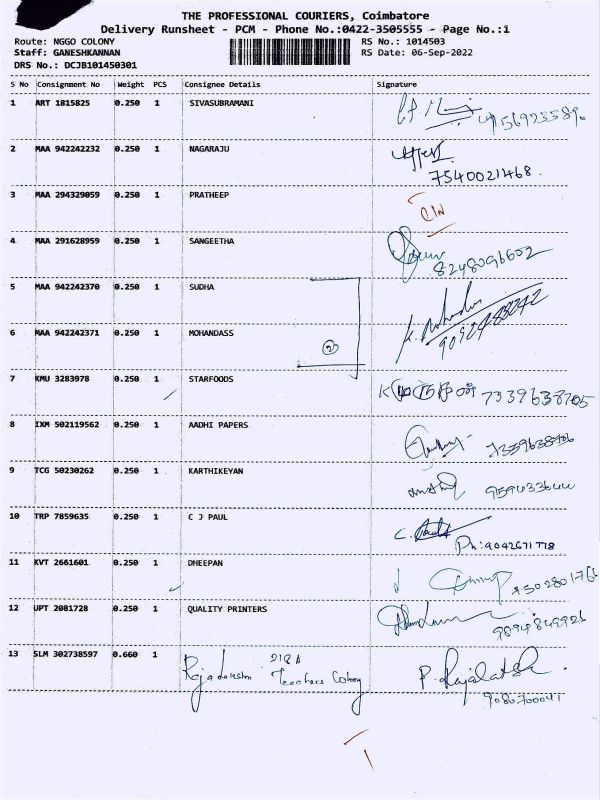 THE PROFESSIONAL COURIERS, Coimbatore
Delivery Runsheet - PCM - Phone No.:0422-3505555 - Page No.:1
Route: NGGO COLONY RS No.: 1014503
Staff: GANESHKANNAN RS Date: 06-Sep-2022
DRS No.: DCJB101450301
S No Consignment No Weight PCS Consignee Details Signature
1 ART 1815825 0.250 1 SIVASUBRAMANI
2 MAA 942242232 0.250 1 NAGARAJU
7540021468.
3 MAA 294329059 0.250 1 PRATHEEP
4 MAA 291628959 0.250 1 SANGEETHA
8248096602
5 MAA 942242370 0.250 1 SUDHA
6 MAA 942242371 0.250 1 MOHANDASS
2
7 KMU 3283978 0.250 1 STARFOODS
8 IXM 502119562 0.250 1 AADHI PAPERS
9 TCG 50230262 0.250 1 KARTHIKEYAN
10 TRP 7859635 0.250 1 C J PAUL
11 KVT 2661601 0.250 1 DHEEPAN
12 UPT 2081728 0.250 1 QUALITY PRINTERS
13 SLM 302738597 0.660 1 Teachers Colony
9080700041